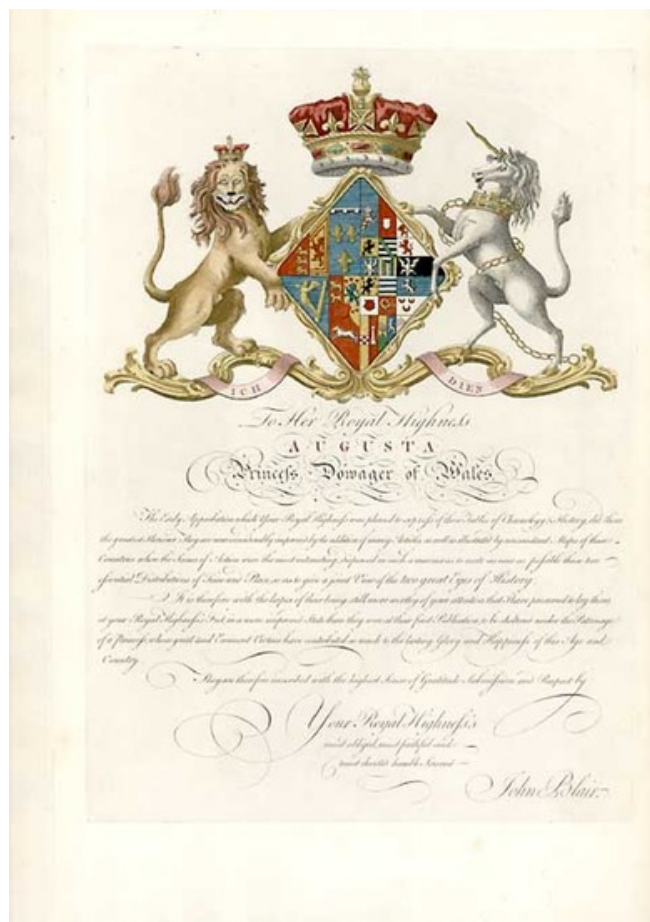 ICH DIEN
To Her Royal Highness
AUGUSTA
Princess Dowager of Wales
The Early Approbation which Your Royal Highness was pleased to express of these Tables of Chronology & History, did them
the greatest Honour They are now considerably improved by the addition of many Articles as well as illustrated by Maps of those
Countries where the Scenes of Action were the most interesting, disposed in such a manner as to unite as near as possible these two
essential Distributions of Time and Place, so as to give a joint View of the two great Eyes of History.
It is therefore with the hopes of their being still more worthy of your attention that I have presumed to lay them
at your Royal Highness's Feet, in a more improved State than they were at their first Publication, to be under the Patronage
of a Princess, whose great and Eminent Virtues have contributed so much to the lasting Glory and Happiness of this Age and
Country.
They are therefore inscribed with the highest Sense of Gratitude Submission and Respect by
Your Royal Highness's
most obliged, most faithful and
most devoted humble Servant
John Blair.